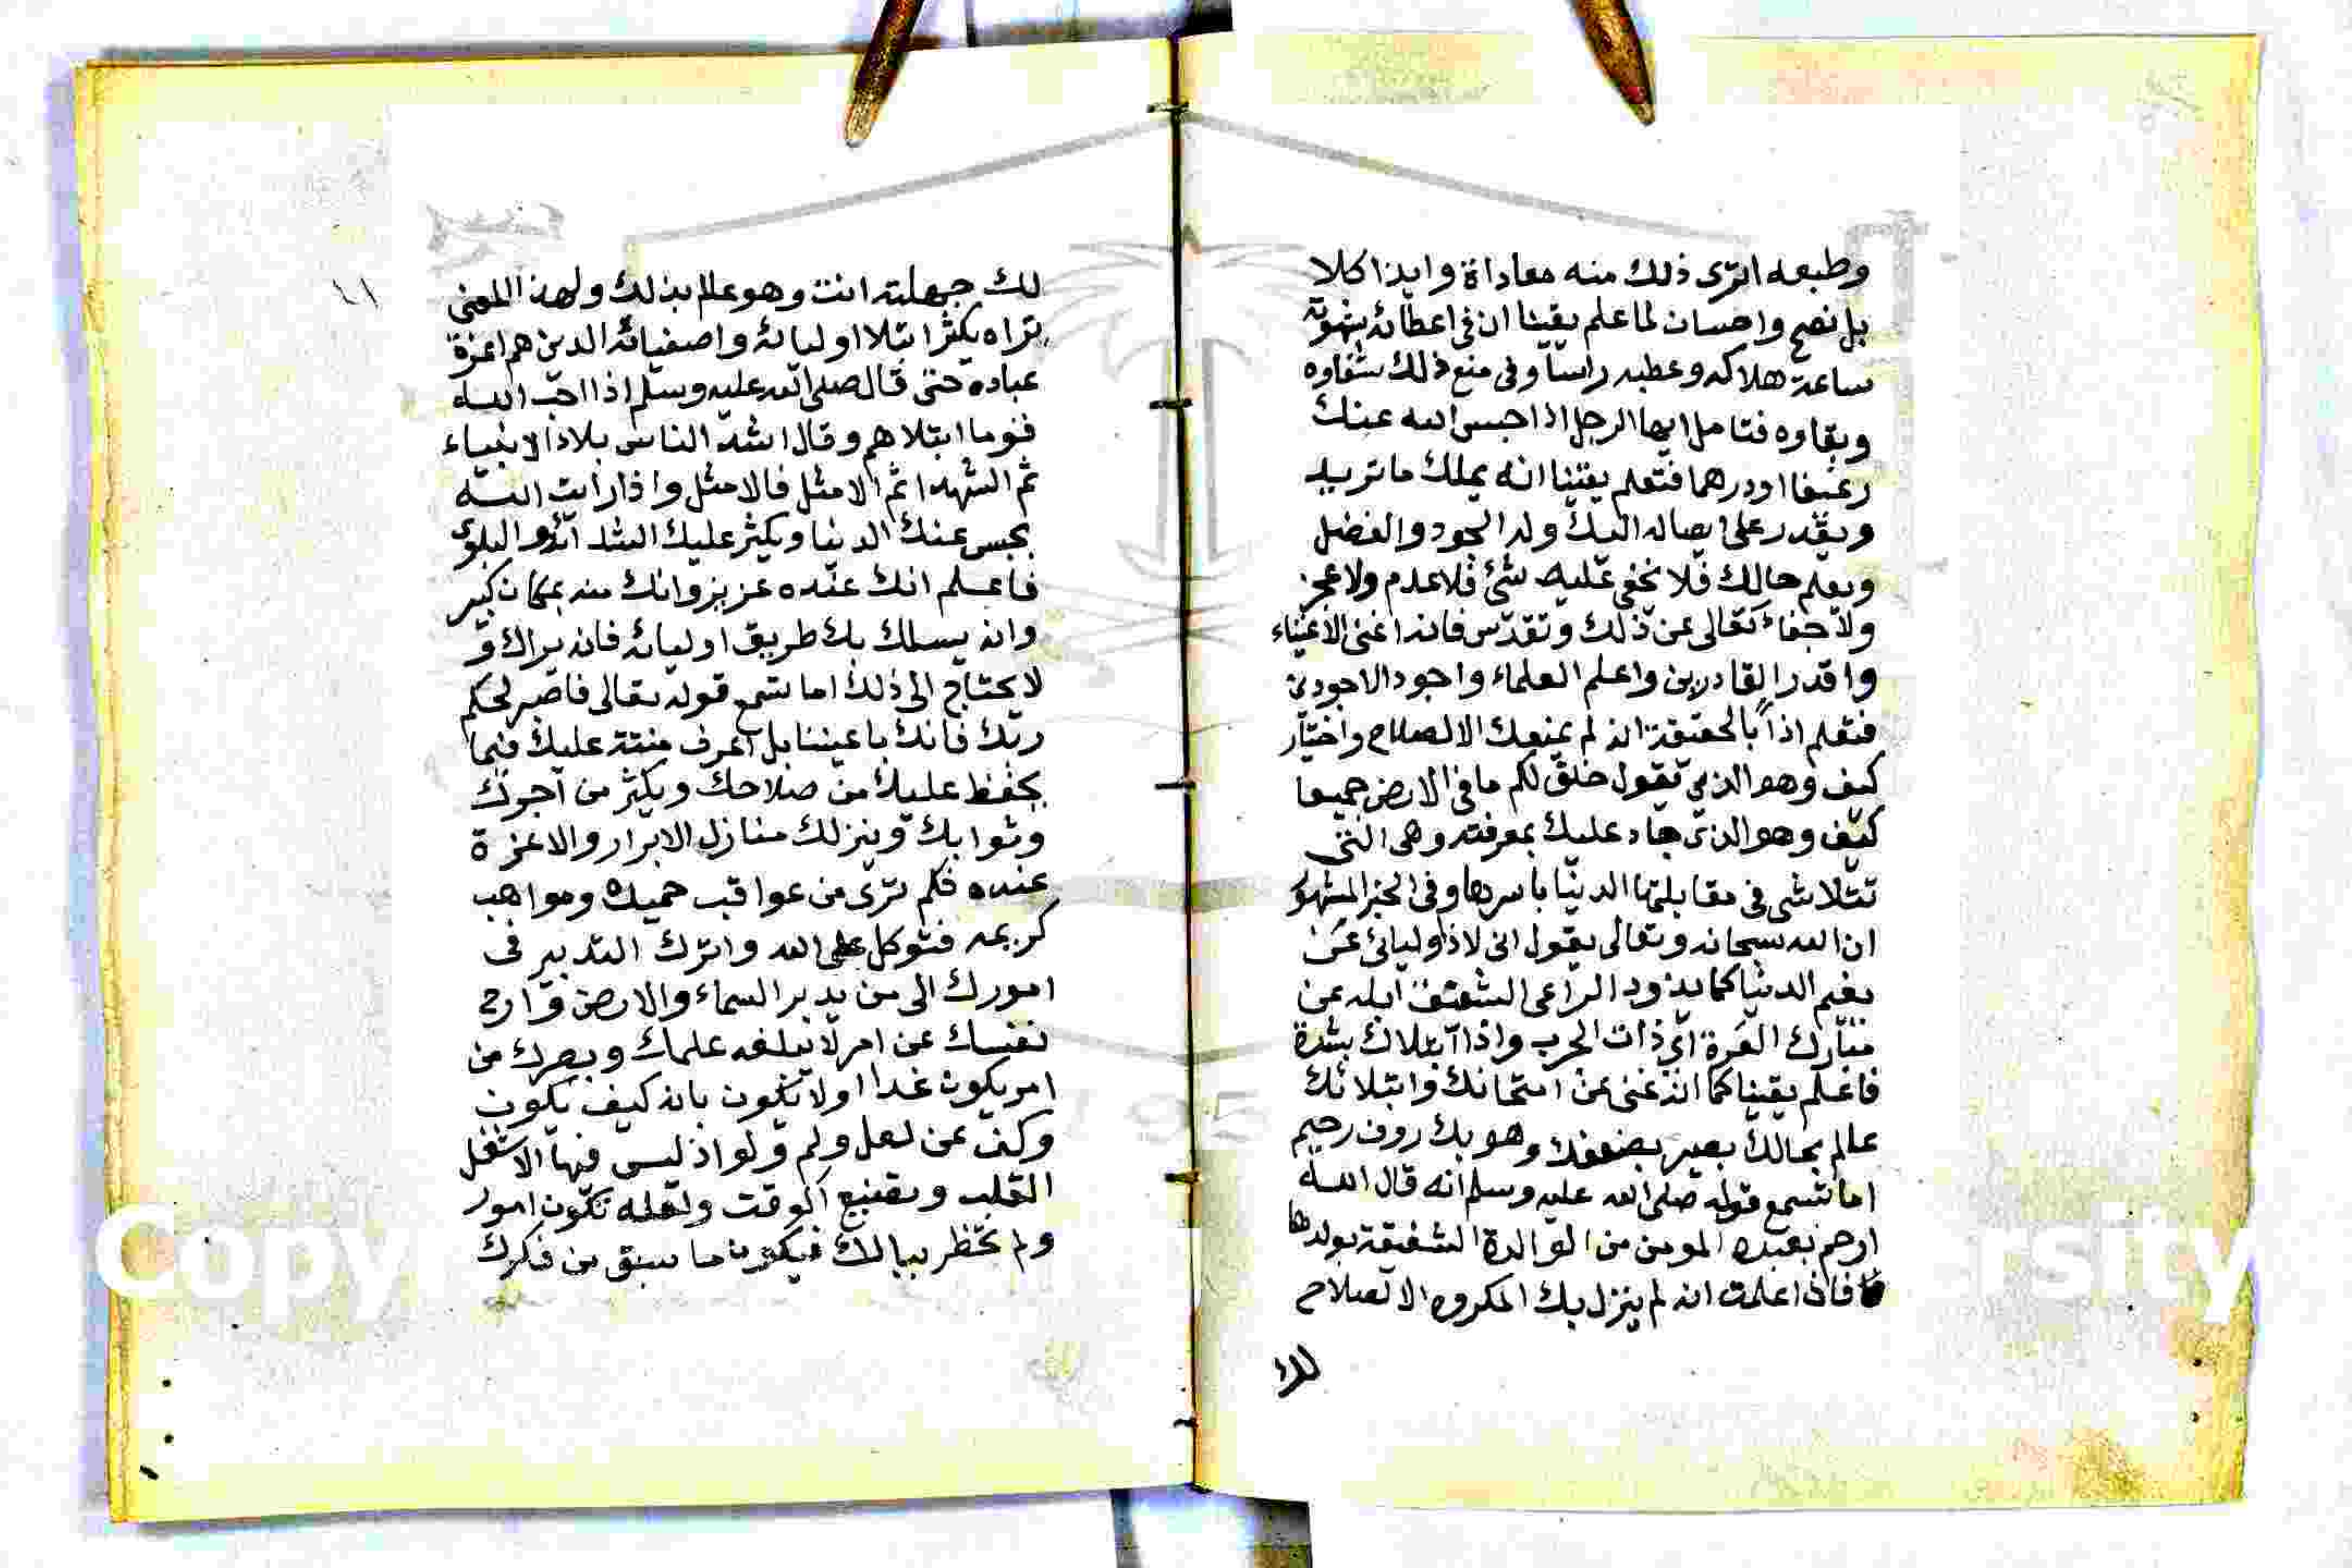 وطبعه اترى ذلك منه معاداة وايذا كلا
بل نصح واحسان لما علم يقينا ان في اعطائه شهوة
ساعة هلاكه وعطبه راسا وفي منع ذلك شفاوه
وبقاوه فتامل ايها الرجل اذا حبس الله عنك
رغيفا او درهما فتعلم يقينا انه يملك ما تريد
ويقدر على ايصاله اليك وله الجود والفضل
ويعلم حالك فلا يخفى عليه شئ فلا عدم ولا عجز
ولا جفاء تعالى عن ذلك وتقدس فانه اغنى الاغنياء
واقدر القادرين واعلم العلماء واجود الاجودين
فتعلم اذاً بالحقيقة انه لم يمنعك الا لصلاح واختيار
كيف وهو الذي يقول خلق لكم ما في الارض جميعا
كيف وهو الذي جاد عليك بمعرفته وهي التي
تتلاشى في مقابلتها الدنيا باسرها وفي الخبر المشهور
ان الله سبحانه وتعالى يقول اني لاذاوليائى عن
نعيم الدنيا كما يذود الراعى الشفيق ابله عن
مبارك العرة اي ذات الجرب واذا ابتلاك بشدة
فاعلم يقينا كما انه غنى عن امتحانك وابتلائك
عالم بحالك بصير بضعفك وهو بك روف رحيم
اما تسمع قوله صلى الله عليه وسلم انه قال الله
ارحم بعبده المومن من الوالدة الشفيقة بولدها
فاذا علمت انه لم ينزل بك المكروه الا لصلاح
لك
١١
لك جهلته انت وهو عالم بذلك ولهذا المعنى
تراه يكثر ابتلا اوليائه واصفيائه الدين هم اعزة
عباده حتى قال صلى الله عليه وسلم اذا احب الله
قوما ابتلاهم وقال اشد الناس بلاء الانبياء
ثم الشهدا ثم الامثل فالامثل واذا رأيت الله
يحبس عنك الدنيا ويكثر عليك الشدائد والبلوى
فاعلم انك عنده عزيز وانك منه بمكان كبير
وانه يسلك بك طريق اوليائه فانه يراك و
لا يحتاج الى ذلك اما تسمع قوله تعالى فاصبر لحكم
ربك فانك باعيننا بل اعرف منته عليك فيما
يحفظ عليك من صلاحك ويكثر من اجرك
وثوابك وينزلك منازل الابرار والاعزة
عنده فكم ترى من عواقب حميده ومواهب
كريمه فتوكل على الله واترك التدبير في
امورك الى من يدبر السماء والارض وارح
نفسك عن امر لا يبلغه علمك وبصرك من
امر يكون غدا اولا يكون بانه كيف يكون
وكف عن لعل ولم ولو اذ ليس فيها الا شغل
القلب وتضييع الوقت ولعله تكون امور
ولم تخطر ببالك فيكون ما سبق من فكرك